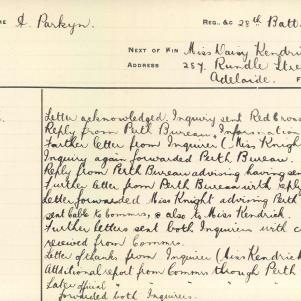 ME A. Parkyn.
REG., &C 28th Batt.
NEXT OF KIN Miss Daisy Kendrick
ADDRESS 287. Rundle Stre
Adelaide. F
Letter acknowledged. Inquiry sent Red Cross
Reply from Perth Bureau. Information
Further letter from Inquirer (Miss Knight
Inquiry again forwarded Perth Bureau.
Reply from Perth Bureau advising having sen
Further letter from Perth Bureau with reply
Letter forwarded Miss Knight advising Perth
sent Cable to Commrs, & also to Miss Kendrick.
Further letters sent both Inquirers with c
received from Commrs.
Letter of thanks from Inquirer (Miss Kendrick
Additional report from Commrs through Perth
Later official " " " "
forwarded both Inquirers.